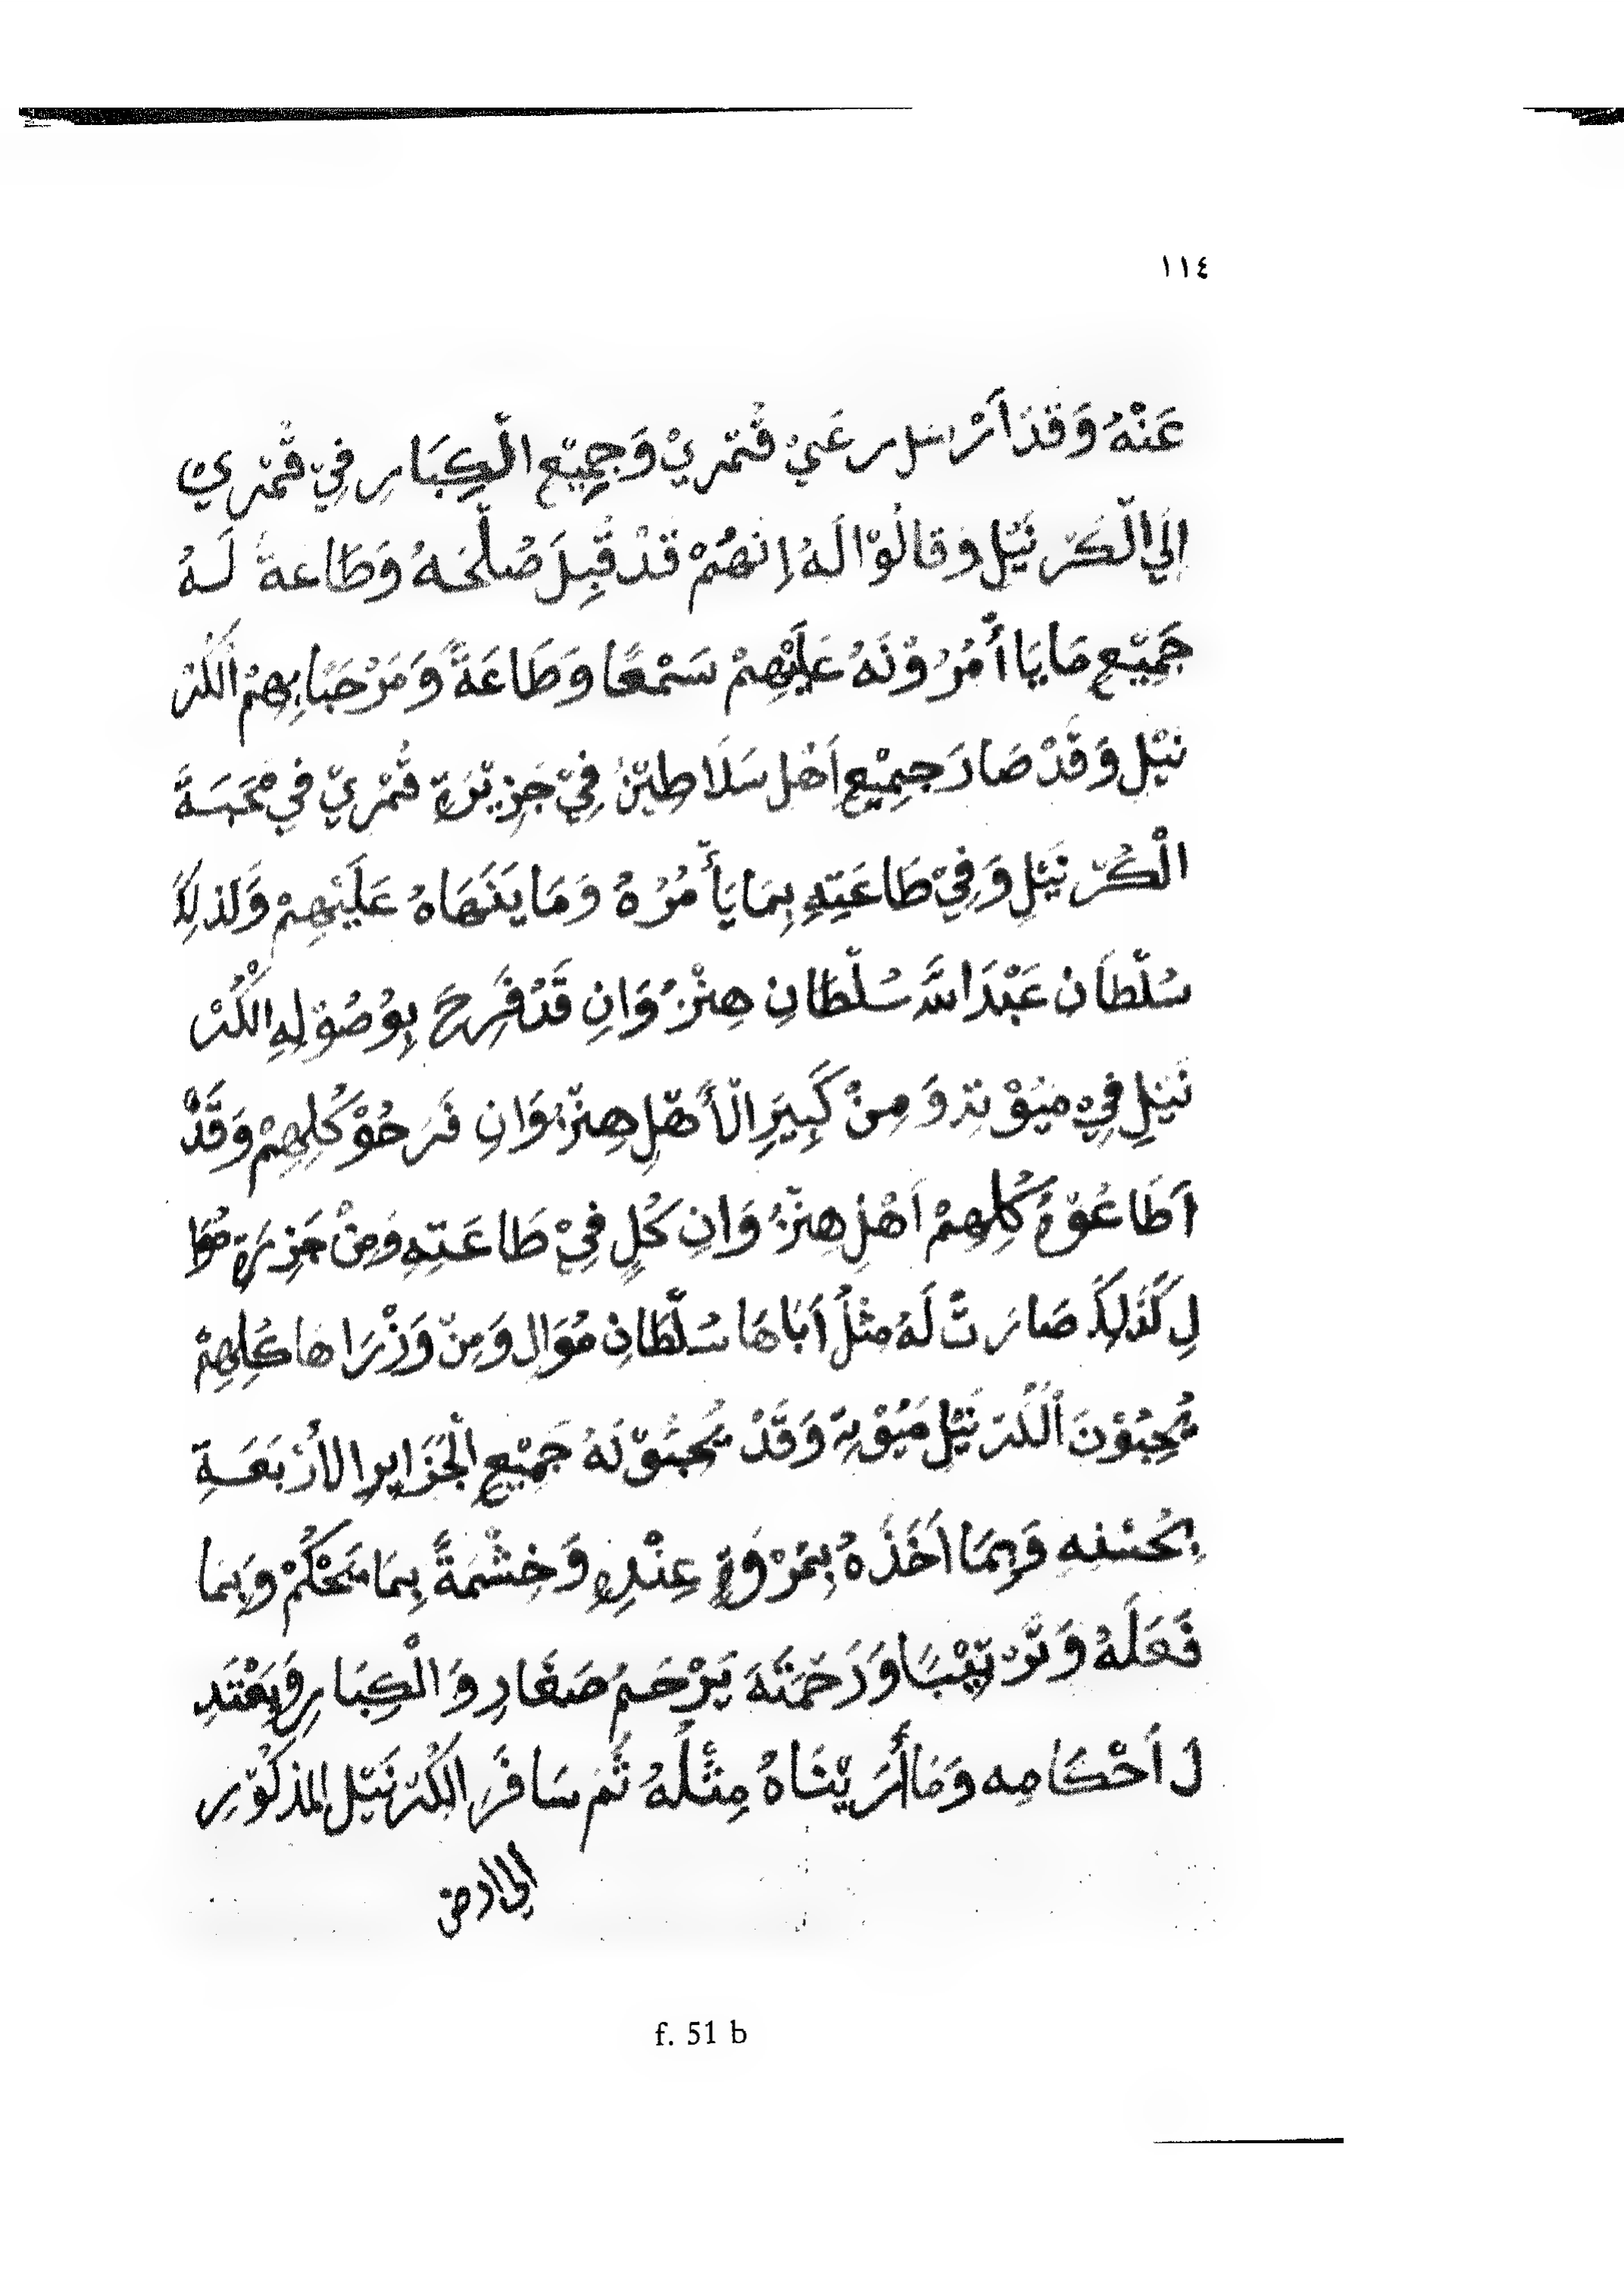 ١١٤
عَنْهُ وَقَدْ اَرْسَل رعَيْ قُمْرِيْ وَجَمِيْع الْكِبَارِ فِيْ قُمْرِيْ
اِلَي الْكَرْنَيْل وَقَالُوْا لَهُ اِنهُمْ قَدْ قَبِلَ صُلْحَهُ وَطَاعةَ لَهُ
جَمِيْع مَا يَاأمُرُوْنَهُ عَلَيْهِمْ سَمْعًا وَطَاعَةً وَمَرْحَبًا بِهِمْ الْكُرْ
نَيْل وَقَدْ صَارَ جَمِيْع اَهْل سَلَاطِيْنُ فِيْ جَزِيْرَةِ قُمْرِيْ فِي مْحَبَةَ
الْكُرْنَيْلِ وَفِيْ طَاعَتِهِ بِمَا يَأمُرُهُ وَمَا يَنَهَاهُ عَلَيْهِمْ وَلَذلِكَ
سُلْطَان عَبْدَ اللَّه سُلْطَانِ هِنْزُوَانِ قَدْ فَرِحَ بِوُصُوْلِهِ الكُرْ
نَيْلِ فِيْ مَيُوْتِهْ وَمِنْ كَبِيَرِ الْأَهْلِ هِنْزُوَانِ فَرَحُوْ كُلِهِمْ وَقَدْ
اَطَاعُوْهُ كُلِهِمْ اَهْلِ هِنْزُوَانِ كُلٍ فِيْ طَاعَتِهِ وَمِنْ جَزِرَةِ مُوَا
لِ كَذَلِكَ صَارَتْ لَهُ مِثْلُ اَبَاهَا سُلْطَانِ مُوَالِ وَمِنْ وَزْرَاهَا كُلِهِمْ
يُحِبُوْنَ الْكُرْنَيْل مَيُوْتِهْ وَقَدْ يُحِبُوْنَهُ جَمِيْعِ الْجَزَايِرِ الاُرْبَعَةِ
بِحُسْنِهِ وَبِمَا اَخَذَهُ بِمَرْوَةٍ عِنْدِهِ وَخِشْمَةً بِمَا يَحْكُمْ وَبِمَا
فَعَلَهُ وَتَرْتِيْبًا وَرَحْمَتَهَ يَرْحَمُ صَغَارِ وَالْكِبَارِ وَيَعْتَدِ
لَ اَحْكَامِه وَمَا أرَيْنَاهُ مِثْلُهُ ثَم سَافَرَ الكُرْنَيْل المذكُوْرِ
الي ارض
f. 51 b